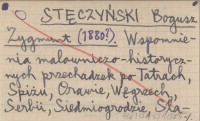 STĘCZYŃSKI Bogusz
Zygmunt (1880?). Wspomnie-
nia malowniczo-historycz-
nych przechadzek po Tatrach,
Spiżu, Orawie, Węgrzech,
Serbii, Siedmiogrodzie,Ślą-